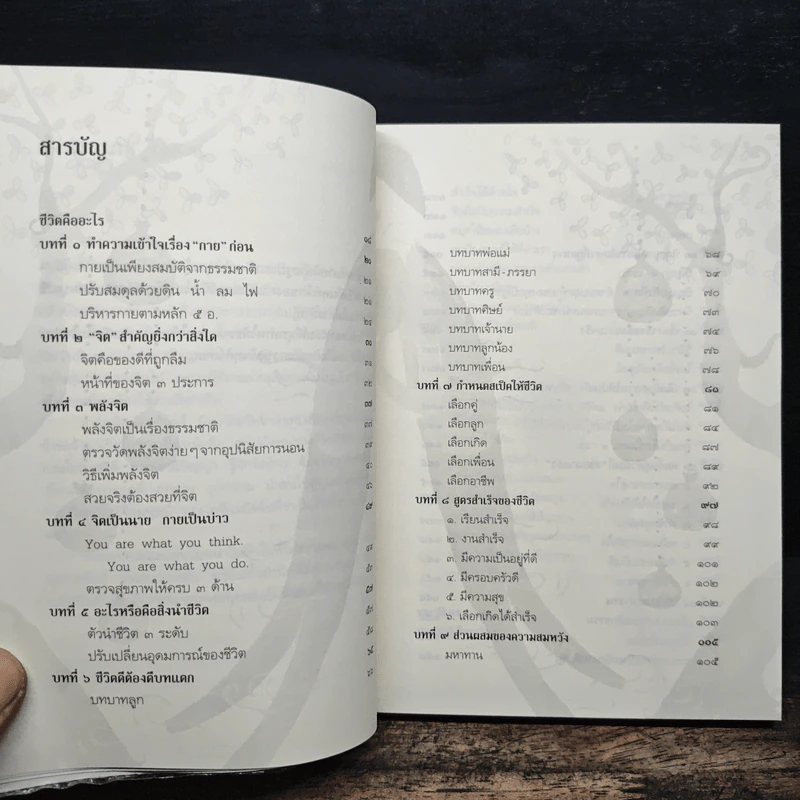 สารบัญ
ชีวิตคืออะไร
บทที่ ๑ ทำความเข้าใจเรื่อง "กาย" ก่อน
กายเป็นเพียงสมบัติจากธรรมชาติ
ปรับสมดุลด้วยดิน น้ำ ลม ไฟ
บริหารกายตามหลัก ๕ อ.
บทที่ ๒ "จิต" สำคัญยิ่งกว่าสิ่งใด
จิตคือของดีที่ถูกลืม
หน้าที่ของจิต ๓ ประการ
บทที่ ๓ พลังจิต
พลังจิตเป็นเรื่องธรรมชาติ
ตรวจวัดพลังจิตง่ายๆ จากอุปนิสัยการนอน
วิธีเพิ่มพลังจิต
สวยจริงต้องสวยที่จิต
บทที่ ๔ จิตเป็นนาย กายเป็นบ่าว
You are what you think.
You are what you do.
ตรวจสุขภาพให้ครบ ๓ ด้าน
บทที่ ๕ อะไรหรือคือสิ่งนำชีวิต
ตัวนำชีวิต ๓ ระดับ
ปรับเปลี่ยนอุดมการณ์ของชีวิต
บทที่ ๖ ชีวิตดีต้องตีบทแตก
บทบาทลูก
บทบาทพ่อแม่ ๖๘
บทบาทสามี-ภรรยา ๖๙
บทบาทครู ๗๐
บทบาทศิษย์ ๗๓
บทบาทเจ้านาย ๗๔
บทบาทลูกน้อง ๗๖
บทบาทเพื่อน ๗๘
บทที่ ๗ กำหนดสเป็คให้ชีวิต ๘๑
เลือกคู่ ๘๑
เลือกลูก ๘๔
เลือกเกิด ๘๗
เลือกเพื่อน ๘๙
เลือกอาชีพ ๙๒
บทที่ ๘ สูตรสำเร็จของชีวิต ๙๗
๑. เรียนสำเร็จ ๙๘
๒. งานสำเร็จ ๙๙
๓. มีความเป็นอยู่ที่ดี ๑๐๑
๔. มีครอบครัวดี ๑๐๒
๕. มีความสุข ๑๐๒
๖. เลือกเกิดได้สำเร็จ ๑๐๓
บทที่ ๙ ส่วนผสมของความสมหวัง ๑๐๕
มหาทาน ๑๐๕